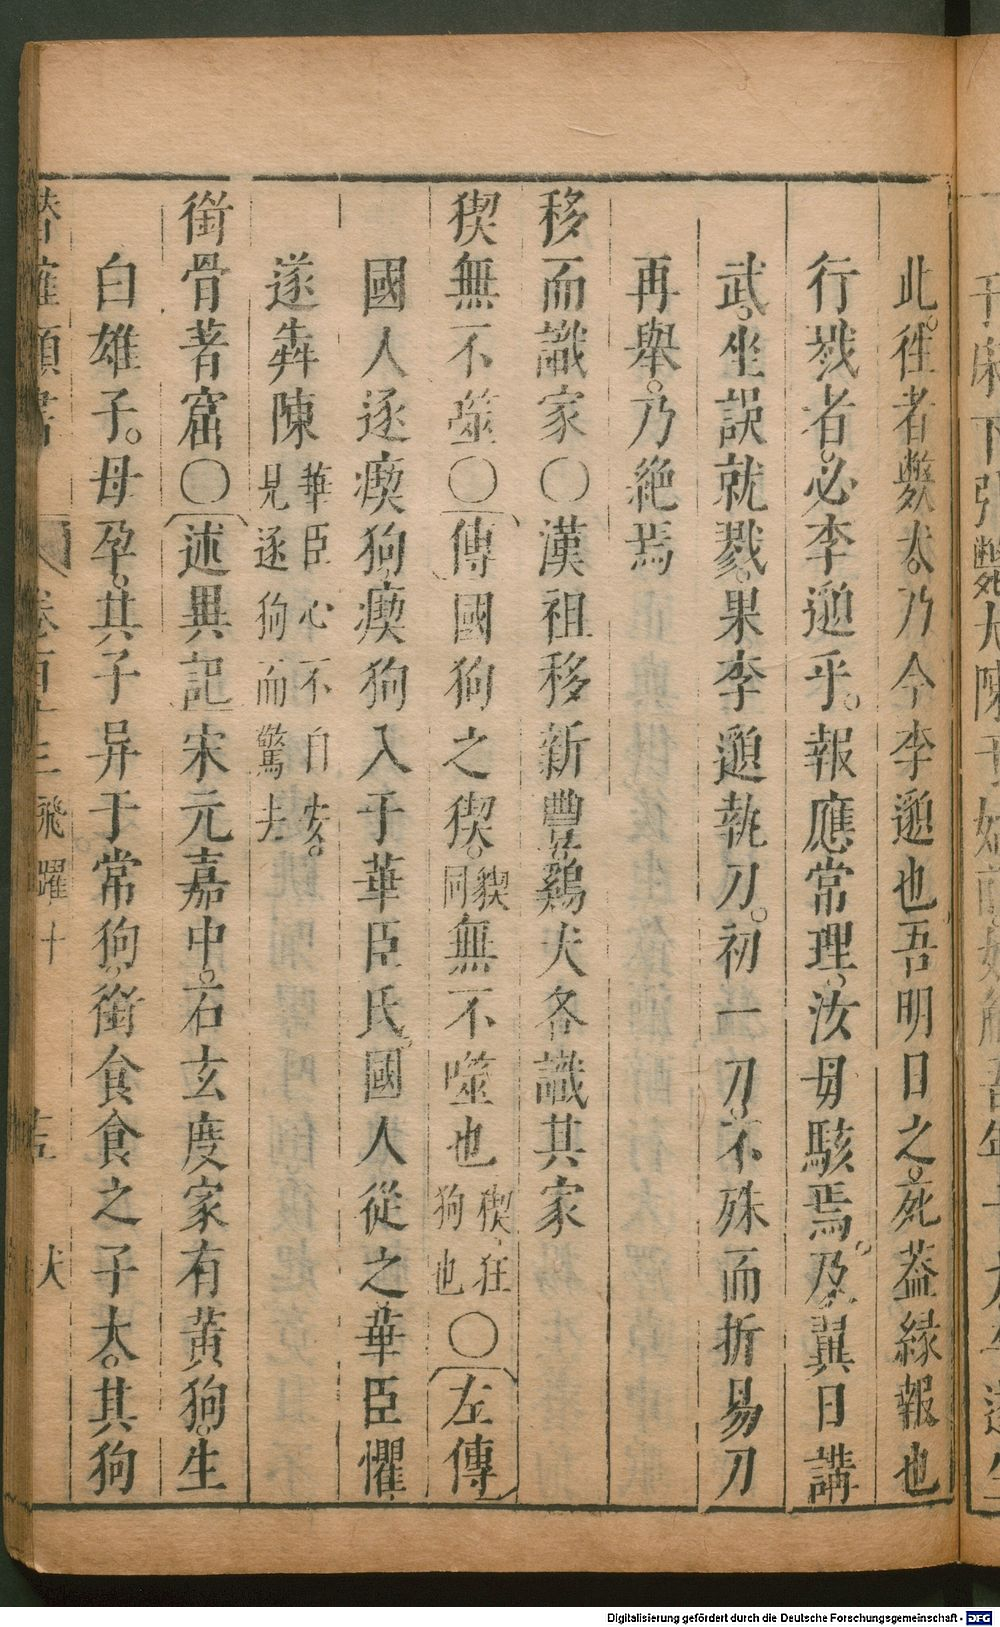 此徃者斃犬乃今李遁也吾明日之死葢緣報也
行戮者必李遁乎報應常理汝毋駭焉及翼日講
武坐誤就戮果李遁執刀初一刀不殊而折易刀
再舉乃絕焉
移而識家〇漢祖移新豐雞犬各識其家
猰無不噬〇傳國狗之猰貑同無不噬也猰狂狗也〇左傳
國人逐瘈狗瘈狗入于華臣氏國人從之華臣懼
遂犇陳華臣心不自安見逐狗而驚走
銜骨著窟〇述異記宋元嘉中石玄度家有黃狗生
白雄子母孕其子异于常狗銜食食之子大其狗
潛確類書 卷百十三飛躍十 犬
Digitalisierung gefördert durch die Deutsche Forschungsgemeinschaft - DFG